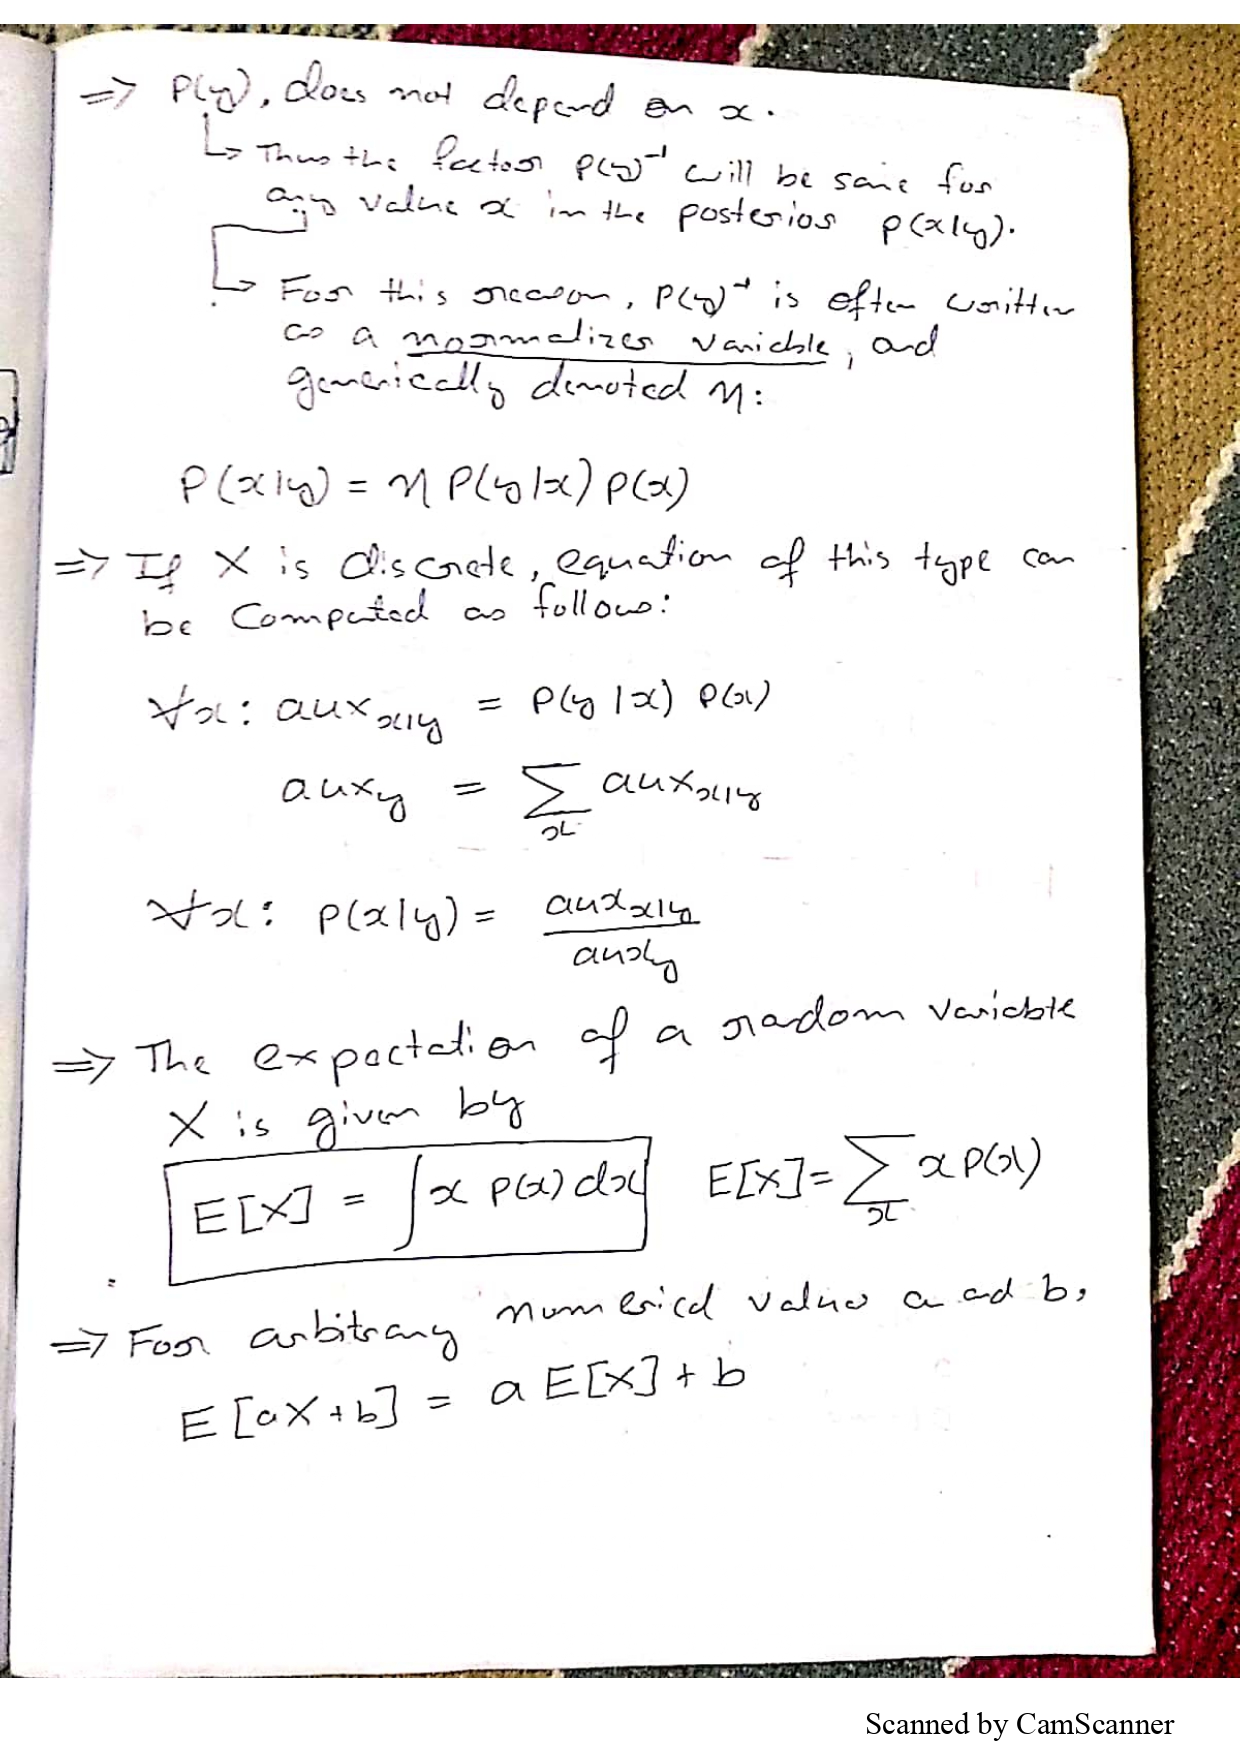 ⇒ P(y), does not depend on x.
↳ Thus the factor P(y)⁻¹ will be same for
any value x in the posterior p(x|y).
↳ For this reason, P(y)⁻¹ is often written
as a normalizer variable, and
generically denoted η:
P(x|y) = η P(y|x) P(x)
⇒ If X is discrete, equation of this type can
be Computed as follows:
∀x: aux_x|y = P(y|x) P(x)
aux_y = Σ_x aux_x|y
∀x: P(x|y) = aux_x|y / aux_y
⇒ The expectation of a radom variable
X is given by
E[X] = ∫ x p(x) dx E[X] = Σ_x x p(x)
⇒ For arbitrary numerical values a ad b,
E[aX+b] = a E[X] + b
Scanned by CamScanner